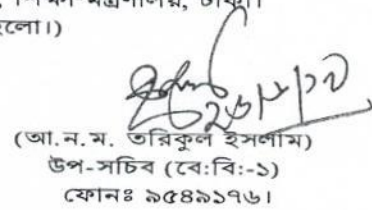 মন্ত্রণালয়, ঢাকা।
হলো।)
(আ.ন.ম. তরিকুল ইসলাম)
উপ-সচিব (বে:বি:-১)
ফোনঃ ৯৫৪৯১৭৬।